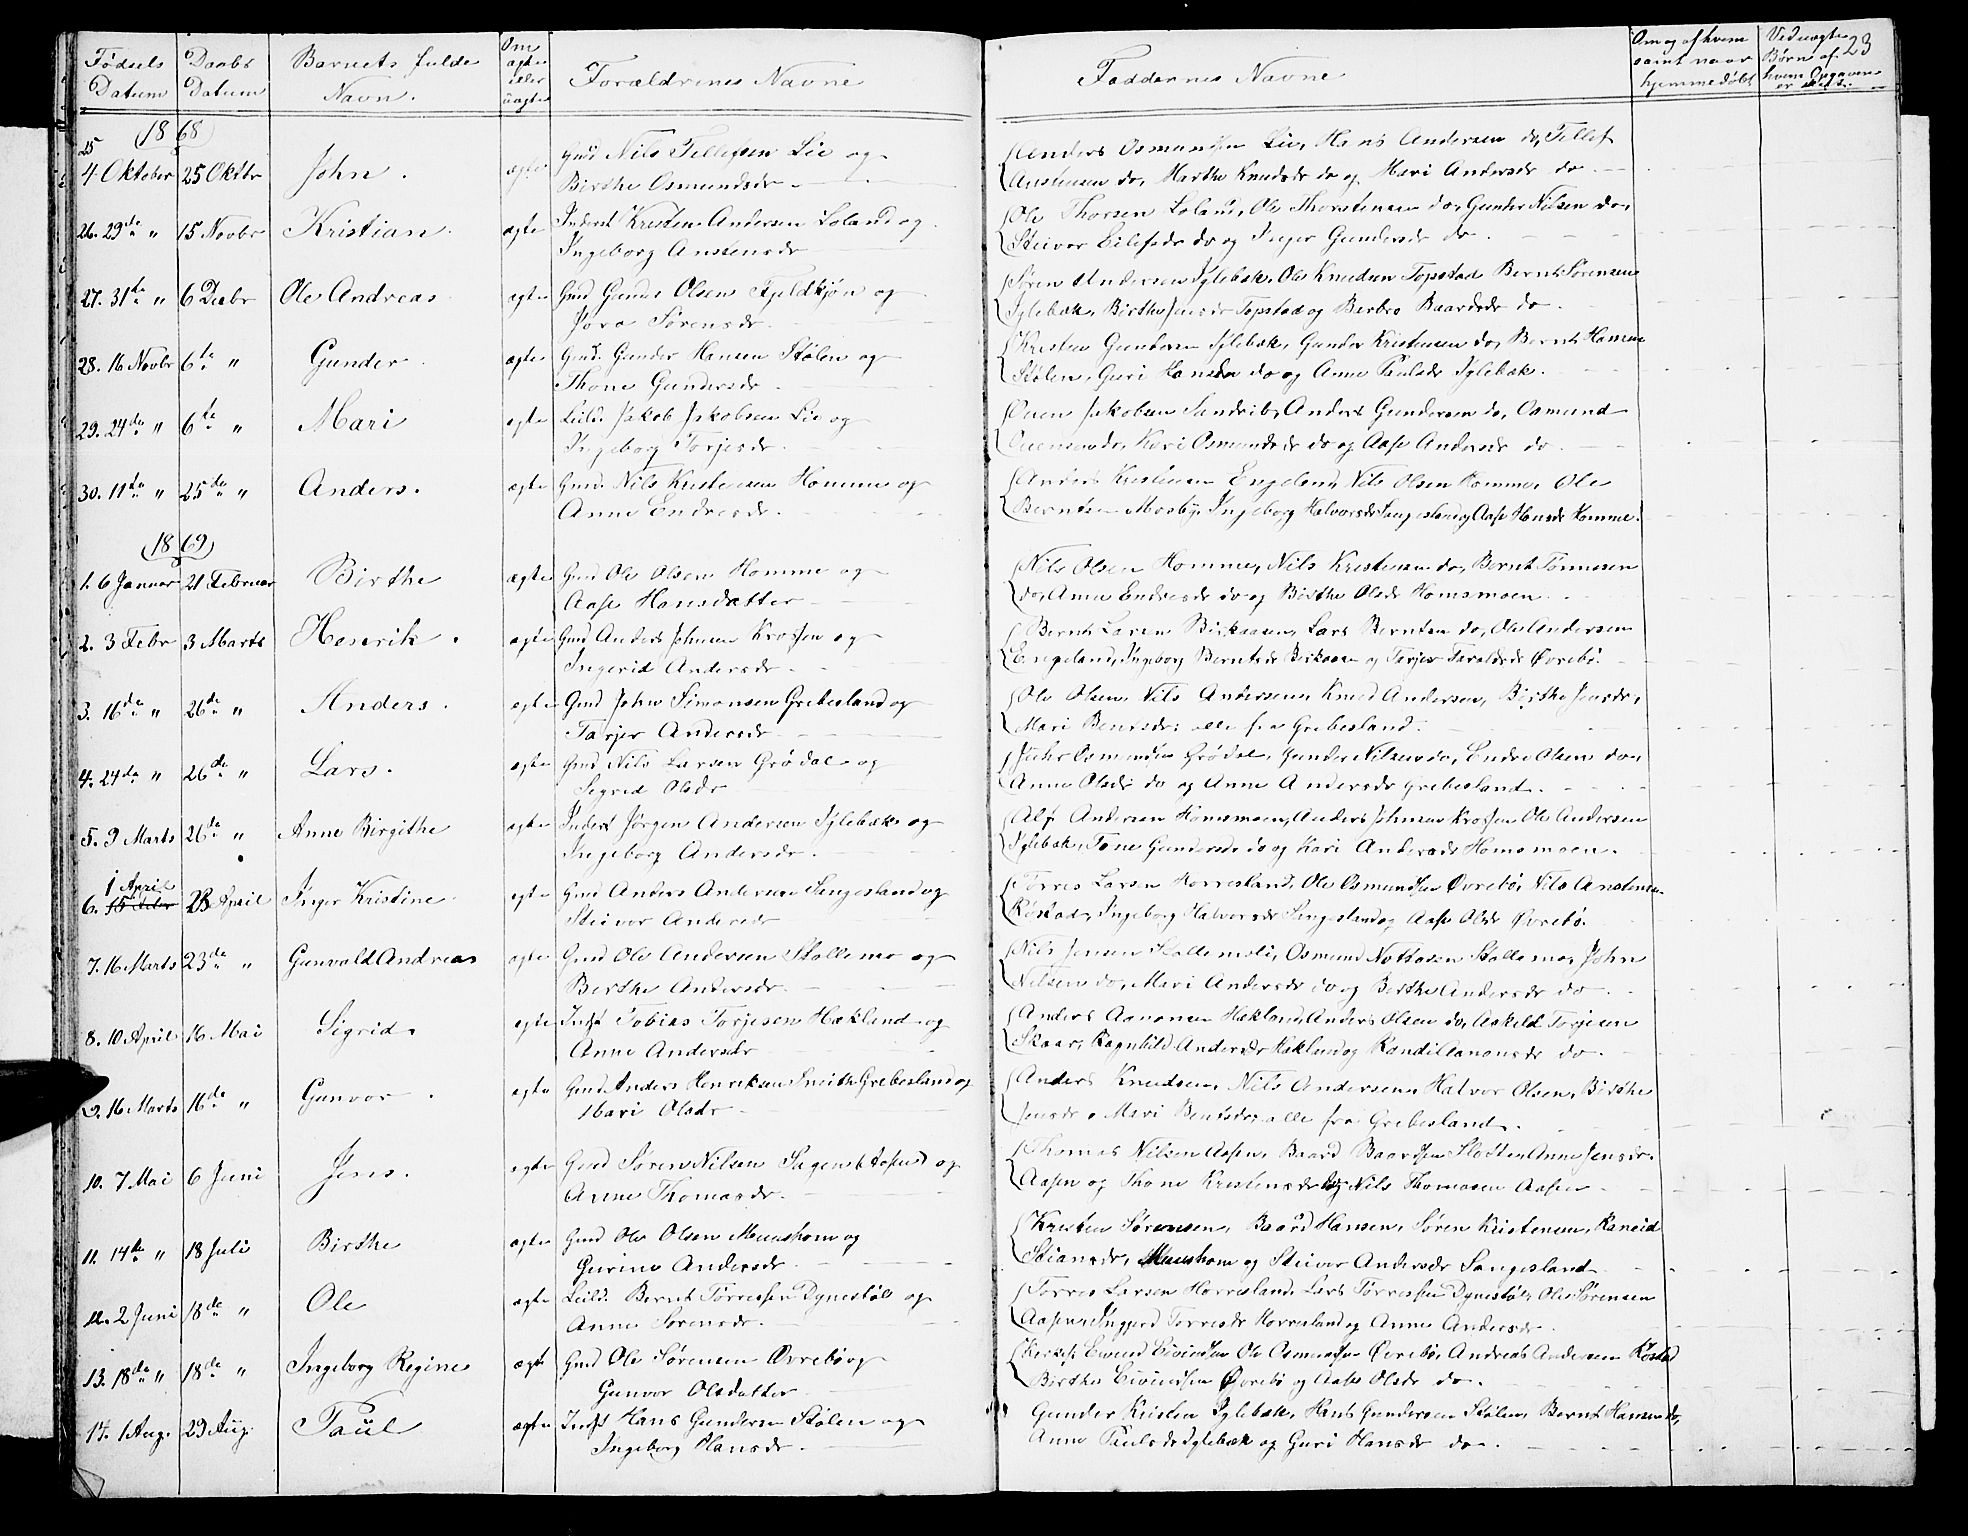 Fødsels Datum | Daabs Datum | Barnets fulde Navn. | Om ægte eller uægte | Forældrenes Navne | Faddernes Navne | Om og af hvem samt naar hjemmedøbt | Ved uægte Børn af hvem Opgaven er skeet. | 23
1868
25 4 Oktober | 25 Oktbr | John. | ægte | Gmd Nils Tellefsen Lie og | Anders Osmundsen Lie, Hans Andersen do, Tellef
Birthe Osmundsdr | Austensen do, Marthe Knudsdr do og Mari Andersdr do
26. 29de " | 15 Novbr | Kristian. | ægte | Inderst Kristen Andersen Loland og | Ole Thorsen Loland, Ole Thorstensen do, Gunder Nilsen do,
Ingeborg Anstensdr | Steivor Eilefsdr do og Inger Gundersdr do
27. 31te " | 6 Decbr | Ole Andreas | ægte | Gmd Gunder Olsen Fjeldkjøn og | Søren Andersen Iglebæk, Ole Knudsen Topstad Bernt Sørensen
Jora Sørensdr | Iglebæk, Birthe Jensdr Topstad og Berbro Baardsdr do.
28. 16 Novbr | 6te " | Gunder | ægte | Gmd. Gunder Hansen Stølen og | Kristen Gundersen Iglebæk, Gunder Kristensen do, Bernt Hansen
Thone Gundersdr | Stølen, Guri Hansdr do og Anne Paulsdr Iglebæk.
29. 24de " | 6te " | Mari | ægte | Leild. Jakob Jakobsen Lie og | Ouen Jakobsen Sandrib, Anders Gundersen do, Osmund
Ingeborg Torjesdr. | Ouensen do, Kari Osmundsdr do og Aase Andersdr do
30. 11te " | 25de " | Anders. | ægte | Gmd. Nils Kristensen Homme og | Anders Kristensen Engeland, Nils Olsen Homme, Ole
Anne Endresdr. | Berntsen Mosby, Ingeborg Halvorsdr Sangesland og Aase Hansdr Homme.
1869
1. 6 Januar | 21 Februar | Birthe | ægte | Gmd Ole Olsen Homme og | Nils Olsen Homme, Nils Kristensen do, Bernt Tønnesen
Aase Hansdatter | do, Anne Endresdr do og Birthe Olsdr Homsmoen
2. 3 Febr | 3 Marts | Henrik. | ægte | Gmd Anders Johnsen Krossen og | Bernt Larsen Birkaasen, Lars Berntsen do, Ole Andersen
Ingerid Andersdr | Engeland, Ingeborg Berntsdr Birkaasen og Torjer Taraldsdr Øvrebø.
3. 16de " | 26de " | Anders. | ægte | Gmd John Simonsen Grebesland og | Ole Olsen, Nils Andersen, Knud Andersen, Birthe Jensdr,
Torjer Andersdr | Mari Bentsdr, alle fra Grebesland.
4. 24de " | 26de " | Lars. | ægte | Gmd Nils Larsen Grødal og | Osmundsen Grødal, Gunder Nilsen do, Endre Olsen do,
Sigrid Olsdr | Anne Olsdr do og Anne Andersdr Grebesland
5. 9 Marts | 26de " | Anne Birgithe | ægte | Inderst Jørgen Andersen Iglebæk og | Alf Andersen Homsmoen, Anders Johnsen Krossen Ole Andersen
Ingeborg Andersdr. | Iglebæk, Tone Gundersdr do og Kari Andersdr Homsmoen.
6. 1 April | 23 April | Inger Kristine | ægte | Gmd Anders Andersen Sangesland og | Torres Larsen Horresland, Ole Osmundsen Øvrebø, Nils Anstensen
Steivor Andersdr | Røstad, Ingeborg Halvorsdr Sangesland og Aase Olsdr Øvrebø.
7. 16 Marts | 23de " | Gunvald Andreas | ægte | Gmd Ole Andersen Stallemo og | Nils Jensen Stallemo, Osmund Stallemo, John
Birthe Andersdr | Nilsen do, Mari Andersdr do og Birthe Andersdr do
8. 10 April | 16 Mai | Sigrid. | ægte | Indst Tobias Torjesen Hækland og | Anders Aanonsen Hækland, Anders Olsen do, Askeld Torjesen
Anne Andersdr | Skaar, Ragnhild Andersdr Hækland og Randi Aanonsdr do.
9. 16 Marts | 16de " | Gunvor. | ægte | Gmd. Anders Henriksen Grebesland og | Anders Knudsen, Nils Andersen, Halvor Olsen, Birthe
Mari Olsdr | Jensdr, Mari Bentsdr, alle fra Grebesland.
10. 7 Mai | 6 Juni | Jens. | ægte | Gmd Søren Nilsen og | Thomas Nilsen Aasen, Baard Baardsen Anne Jensdr
Anne Thomasdr. | Aasen og Thone Kristensdr og Nils Thomasen Aasen
11. 14de " | 18 Juli | Birthe | ægte | Gmd Ole Olsen Muushom og | Kristen Sørensen, Baard Hansen, Søren Kristensen, Raneid
Gurine Andersdr | Stiansdr, Muushom og Steivor Andersdr Sangesland
12. 2 Juni | 18de " | Ole | ægte | Leild. Bernt Torresen Dynestøl og | Torres Larsen Horresland, Lars Torresen Dynestøl, Ole Sørensen
Anne Sørensdr. | Aasen, Ingjerd Torresdr Horresland og Anne Andersdr.
13. 18de " | 18de " | Ingeborg Regine | ægte | Gmd Ole Sørensen Øvrebø og | Eivindsen Ole Osmundsen Øvrebø, Andreas Andersen Røstad
Gunvor Olsdatter | Birthe Eivindsen Øvrebø og Aase Olsdr do.
14. 1 Aug. | 29 Aug. | Paul | ægte | Indst Hans Gundersen Stølen og | Gunder Kristen Iglebæk, Hans Gundersen Stølen, Bernt Hansen do,
Ingeborg Hansdr. | Anne Paulsdr Iglebæk og Guri Hansdr do.